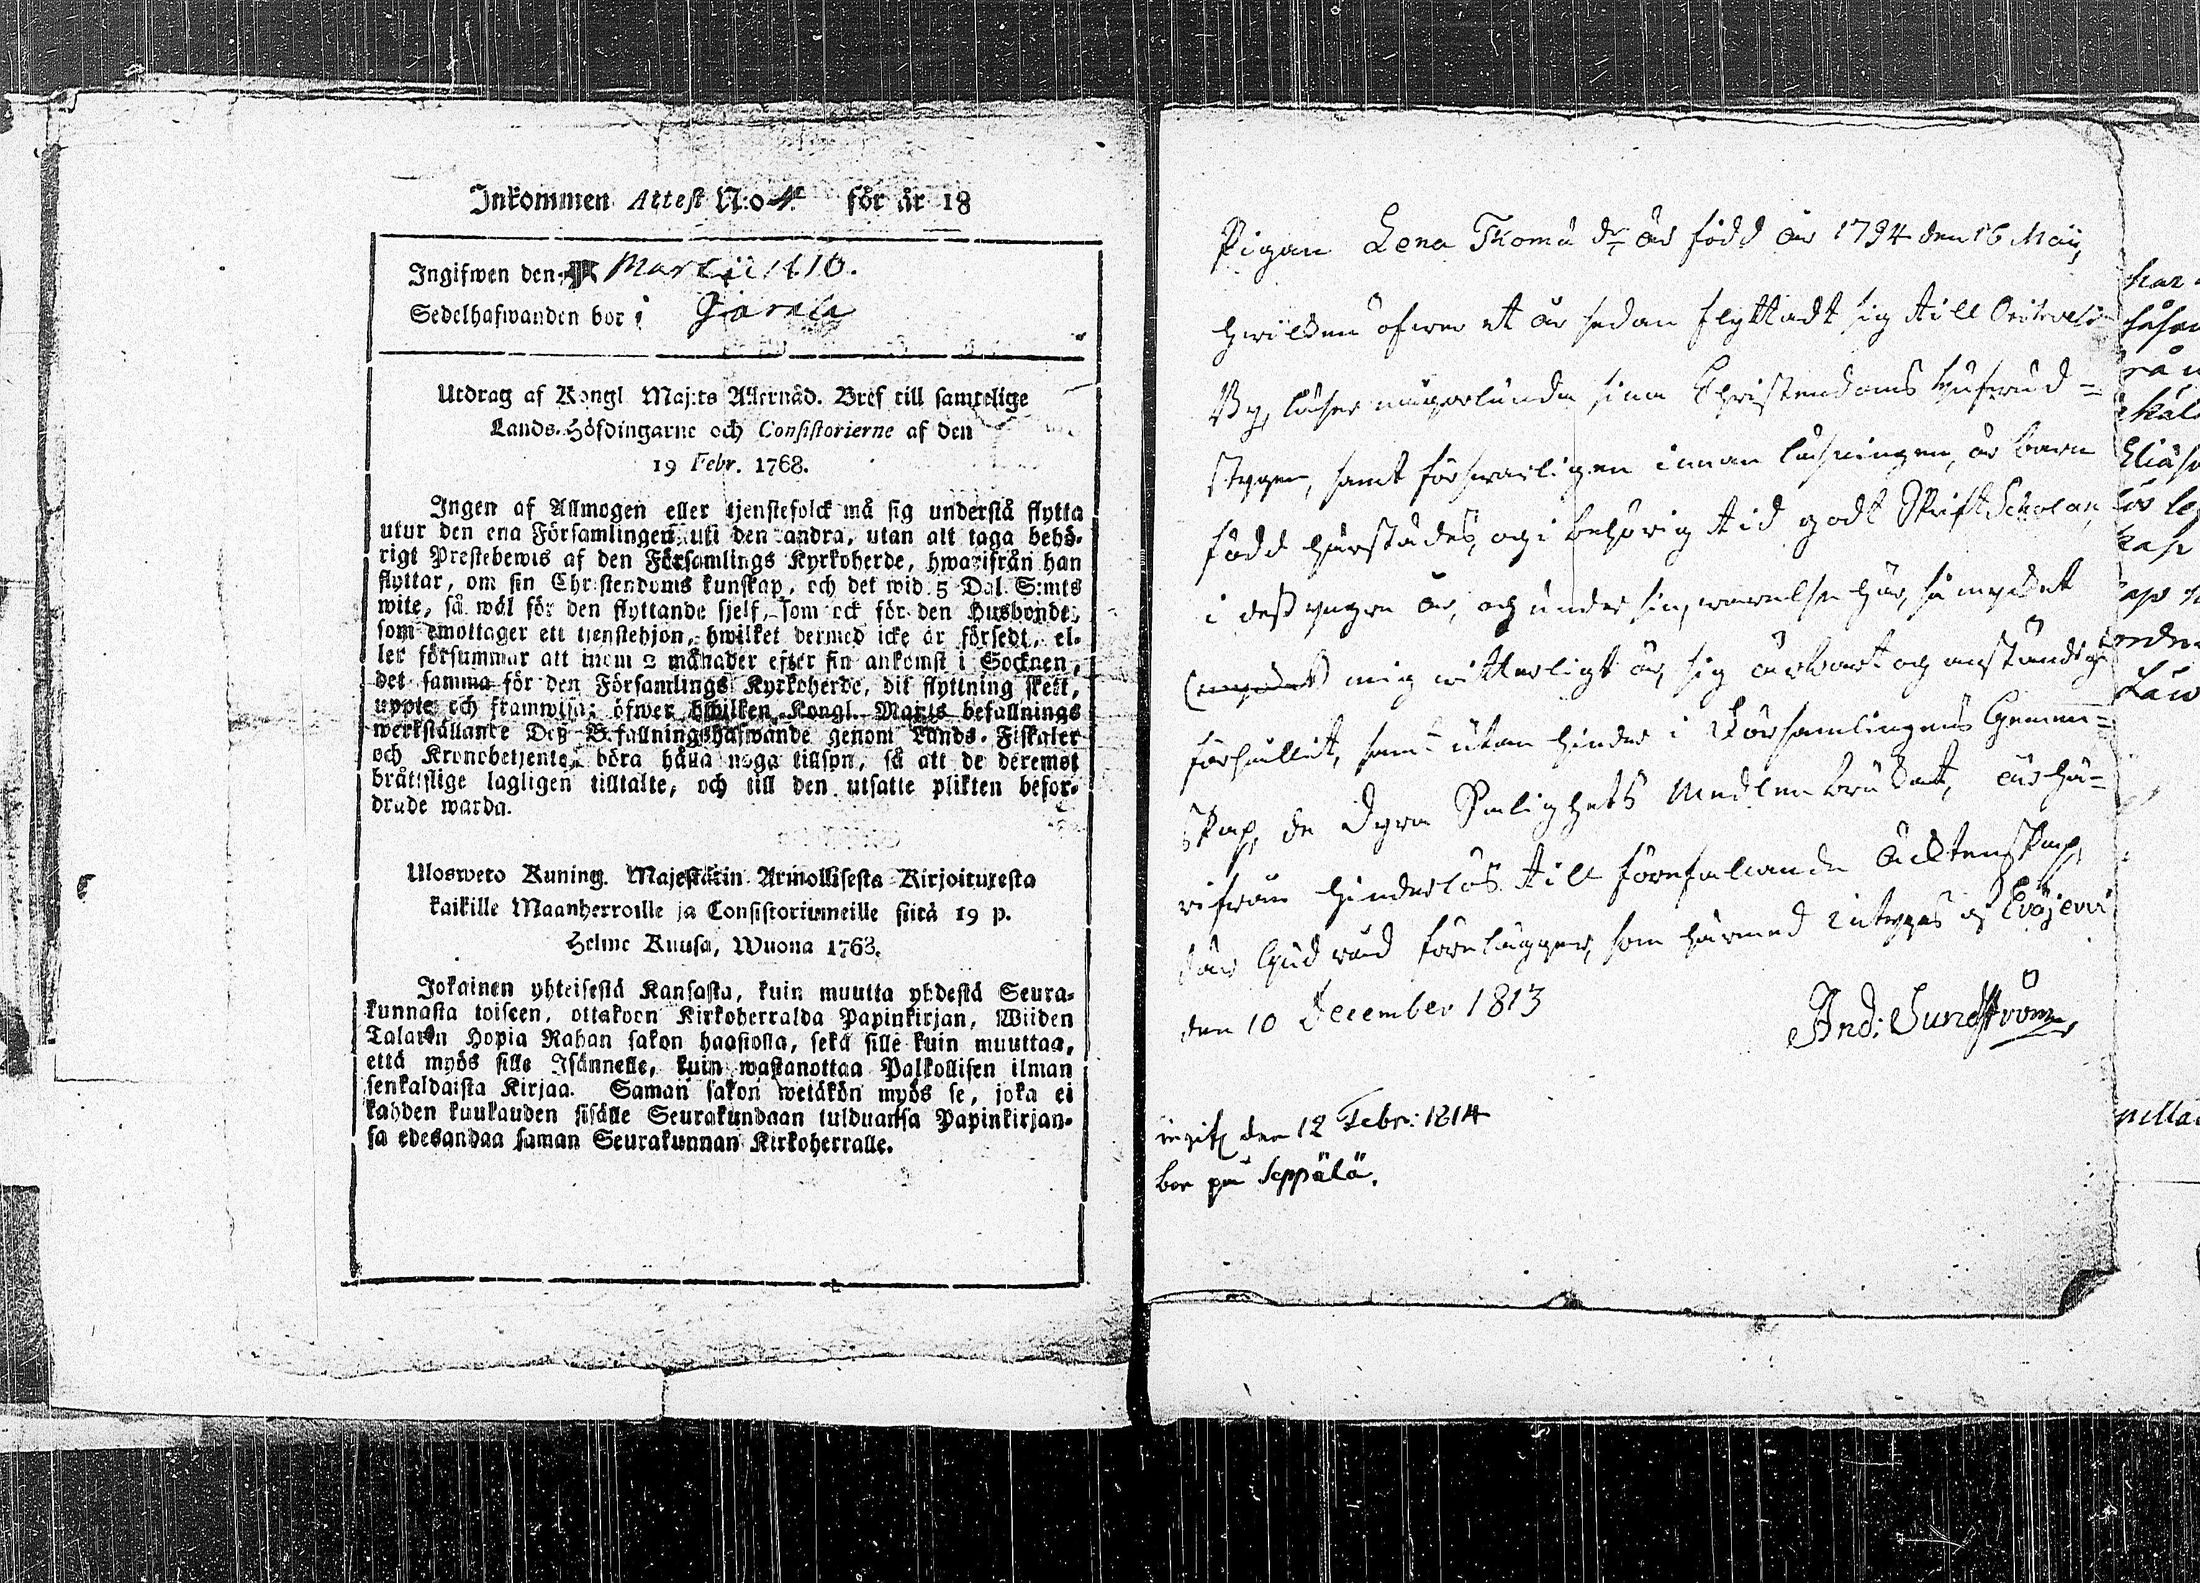 Inkommen Attest N:o 4 för år 18
Ingifwen den Martii 1816.
Sedelhafwanden bor i Jarala
Utdrag af Kongl Maj:ts Allernåd. Bref till samtelige
Lands-Höfdingarne och Consistorierne af den
19 Febr. 1768.
Ingen af Allmogen eller tjenstefolck må sig understå flytta
utur den ena Församlingen uti den andra, utan att taga behö-
rigt Prestebewis af den Församlings Kyrkoherde, hwarifrån han
flyttar, om sin Christendoms kunskap, och det wid 5 Dal. S:mts
wite, så wäl för den flyttande sjelf, som ock för den Husbonde,
som emottager ett tjenstehjon, hwilket dermed icke är försedt, el-
ler försummar att inom 2 månader efter sin ankomst i Socknen,
det samma för den Församlings Kyrkoherde, dit flyttning skett,
uppte och framwisa; öfwer hwilken Kongl. Maj:ts befallnings
werkställante Deß Befallningshafwande genom Lands-Fiskaler
och Kronobetjente böra hålla noga tillsyn, så att de deremot
bråttslige lagligen tilltalte, och till den utsatte plikten befor-
drade warda.
Ulosweto Kuning. Majestätin Armollisesta Kirjoituxesta
kaikille Maanherroille ja Consistoriumeille siitä 19 p.
Helme Kuusa, Wuona 1763.
Jokainen yhteisestä Kansasta, kuin muutta yhdestä Seura-
kunnasta toiseen, ottakoon Kirkoherralda Papinkirjan, Wiiden
Talarin Hopia Rahan sakon haastolla, sekä sille kuin muuttaa,
että myös sille Isännelle, kuin wastanottaa Palkollisen ilman
senkaldaista Kirjaa. Saman sakon wetäkön myös se, joka ei
kahden kuukauden sisälle Seurakundaan tulduansa Papinkirjan-
sa edesandaa saman Seurakunnan Kirkoherralle.
Pigan Lena Thomæ dr är född år 1794 den 16 Maij,
hwilken öfwer et år sedan flyttadt sig till
By, läser någorlunda sina Christendoms hufwud=
stygen, samt förswarligen innan läsningen, är barn
född härstädes, och i behörig tid gådt Skrift Scholan,
i deß yngre år, och under sin warelse här, så mycket
(mycket) mig witterligt är, sig ärbart och anständigt
förhållit, samt utan hinder i Församlingens Gemen=
skap, de dyra Salighets Medlen brukat, är hä-
rifrån hinderlös till förefallande Äcktenskap,
där Gud råd förelägger, som härmed intygas af Evojervi
den 10 December 1813
And: Sundström
ingif den 12 Febr: 1814
bor på Seppälä.